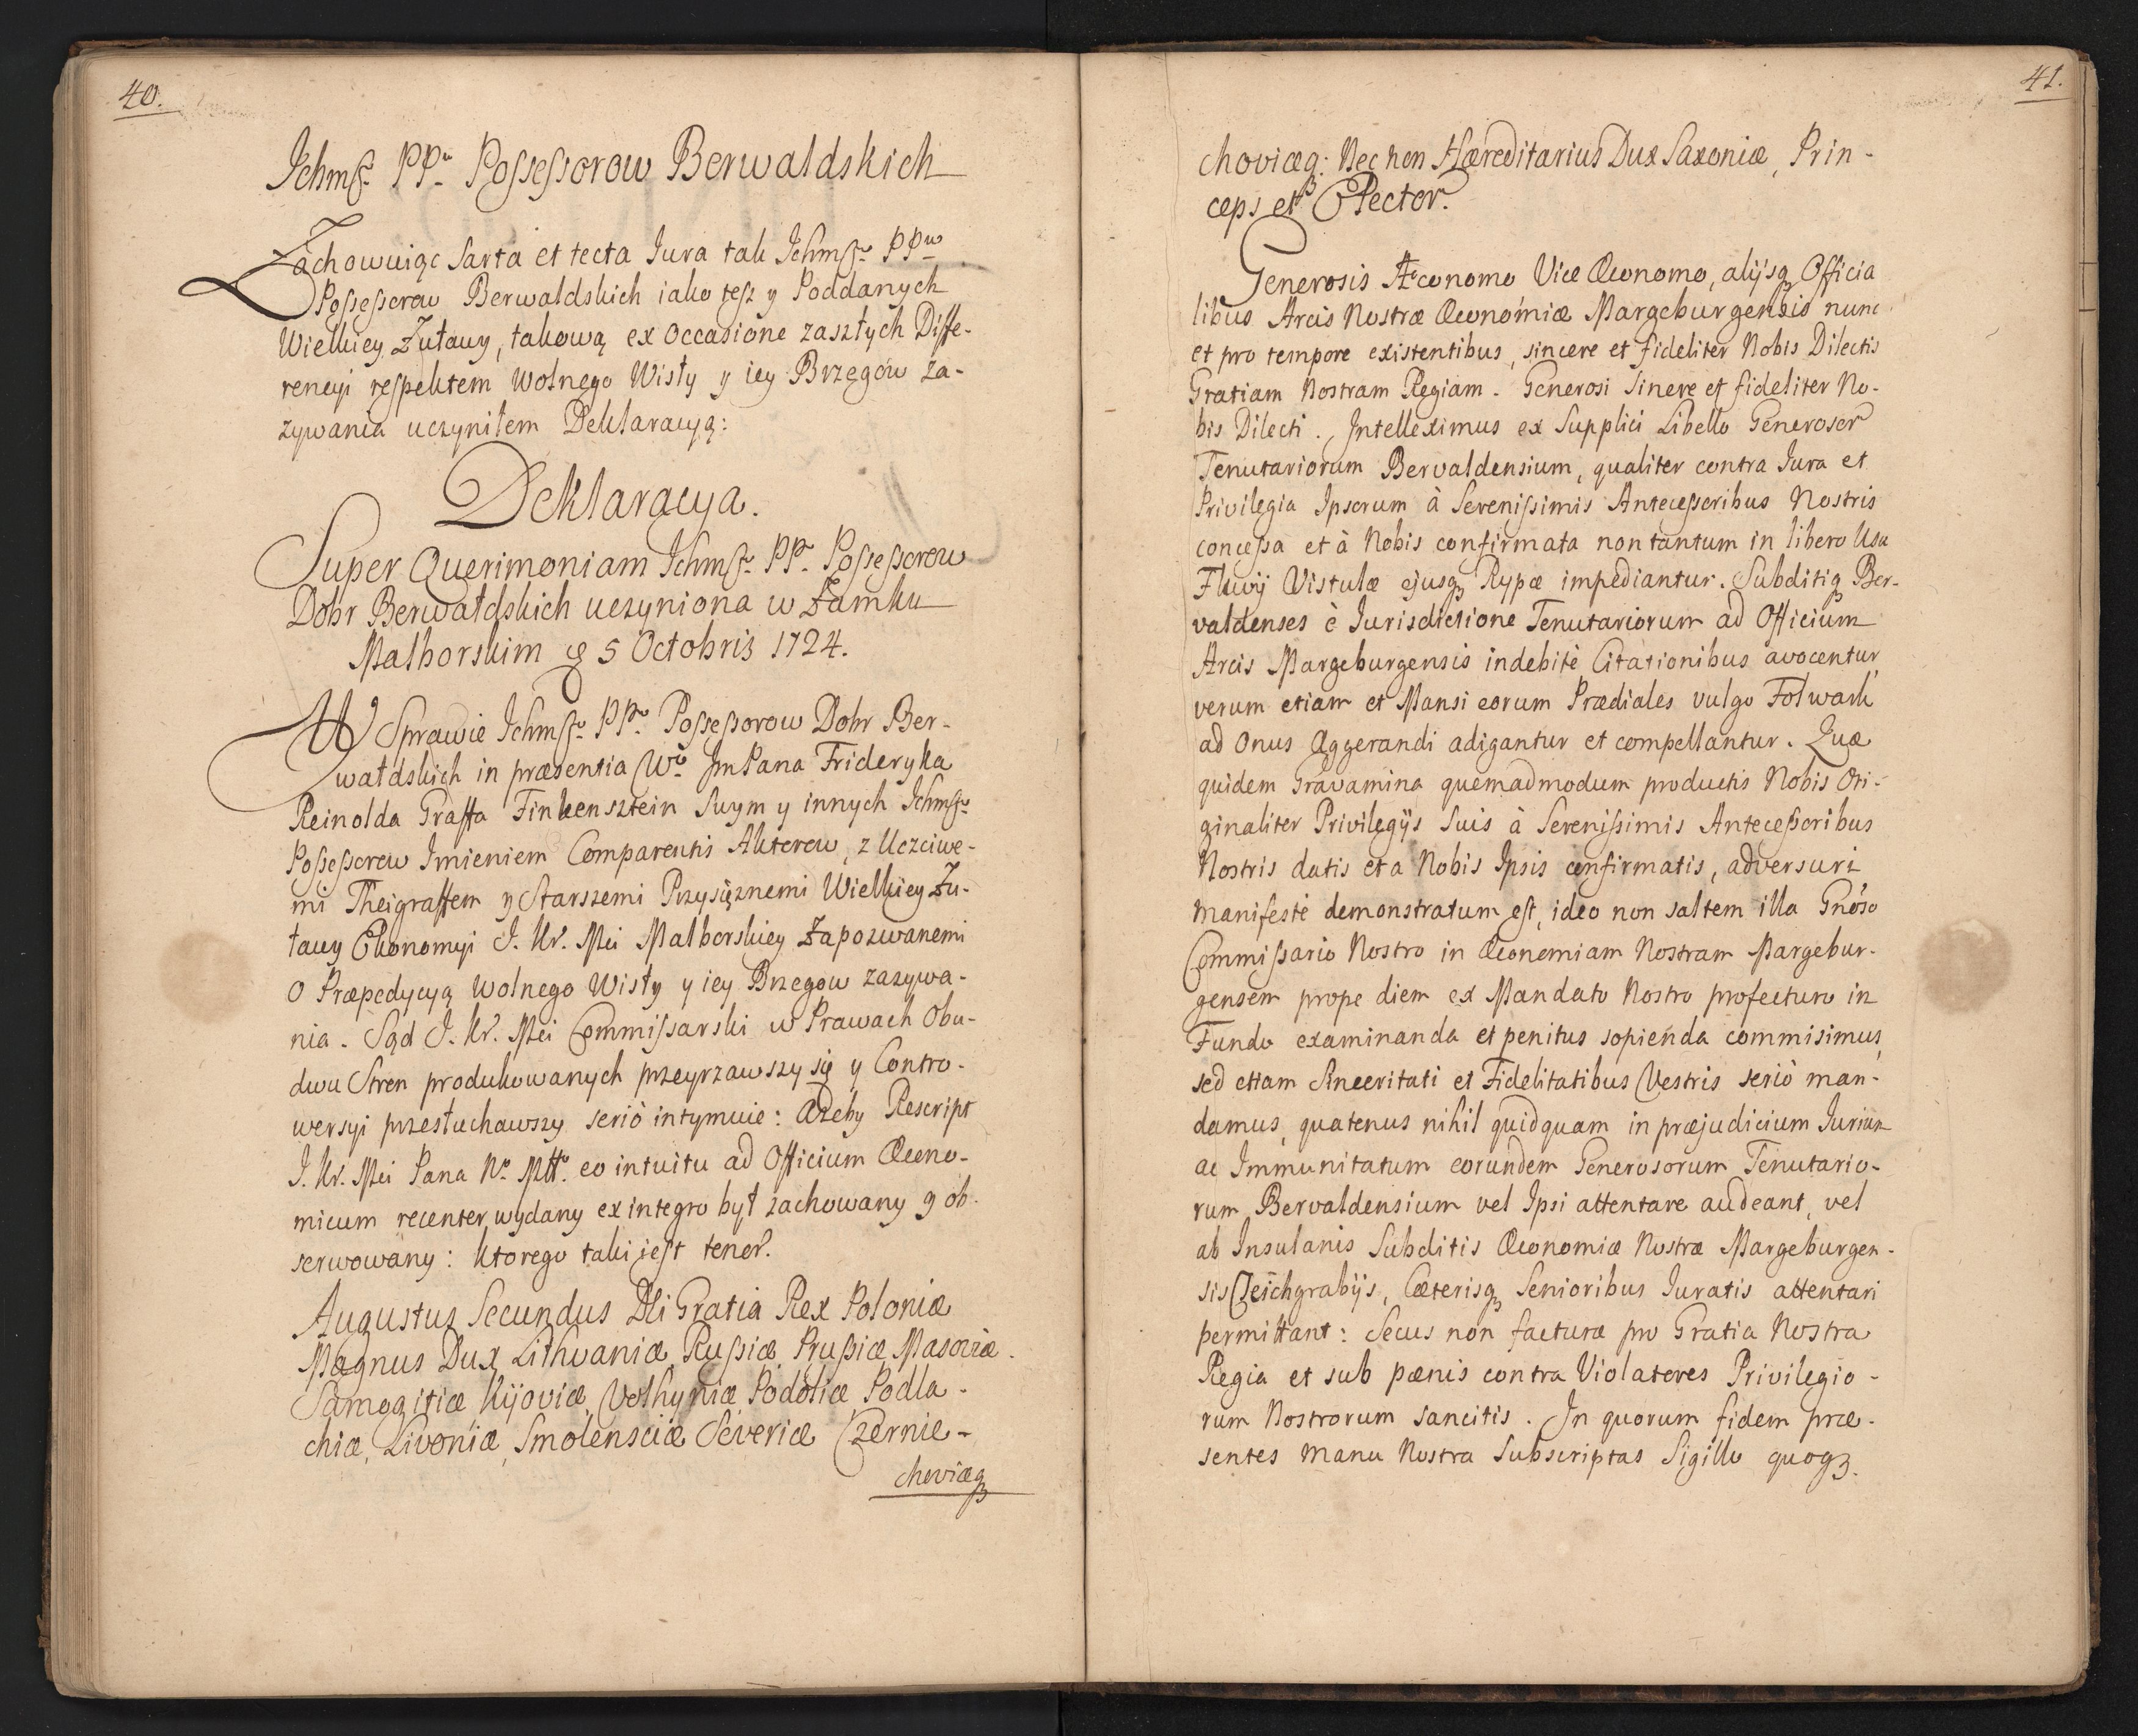 40.
Ichmſ. PPw Poſseſsorow Berwaldskich
Zachowuiąc Sarta et tecta Iura tak Ichmſw PPw
Poſseſsorow Berwaldskich iako tesz y Poddanych
Wielkiey Żuławy, takową ex occasione zaszłych Diffe-
rencyi reſpektem wolnego Wisły y iey Brzegów za-
żywania uczyniłem Deklaracyą:
Deklaracya.
Super Querimoniam Ichmſw PPw Poſseſsorow
Dobr Berwałdskich uczyniona w Zamku
Malborskim 5 Octobris 1724.
W Sprawie Ichmſw PPw Poſseſsorow Dobr Ber-
wałdskich in præsentia Wo JmPana Frideryka
Reinolda Graffa Finkensztein Swym y innych Ichmſw
Poſseſsorow Imieniem Comparentis Aktorow, z Uczciwe-
mi Theigraffem y Starszemi Przysiężnemi Wielkiey Żu-
ławy Ekonomyi J. Kr. Mci Malborskiey Zapozwanemi
O Præpedycyą Wolnego Wisły y iey Brzegow zazywa-
nia. Sąd J. Kr. Mci Commiſsarski w Prawach Obu-
dwu Stron produkowanych przeyrzawszy się y Contro-
wersyi przesłuchawszy seriò intymuie: ażeby Rescript
J. Kr. Mci Pana No Mtto eo intuitu ad Officium Œcono-
micum recenter wydany ex integro był zachowany y ob-
serwowany: ktorego taki jeſt tenor.
Augustus Secundus DEi Gratia Rex Poloniæ
Magnus Dux Lithvaniæ, Ruſsiæ, Pruſsiæ, Masoviæ
Samogitiæ Kijoviæ, Volhyniæ, Podoliæ Podla-
chiæ, Livoniæ, Smolensciæ Severiæ Czernie-
choviæq
41.
choviæq: Nec non Hæreditarius Dux Saxoniæ, Prin-
ceps et Elector.
Generosis Æconomo Vice Œconomo, alijsq Officia
libus Arcis Nostræ Œconomiæ Margeburgensis nunc
et pro tempore existentibus, sincere et fideliter Nobis Dilectis
Gratiam Nostram Regiam. Generosi Sincre et fideliter No-
bis Dilecti. Intelleximus ex Supplici Libello Generosor
Tenutariorum Bervaldensium, qualiter contra Iura et
Privilegia Ipsorum à Sereniſsimis Anteceſsoribus Nostris
conceſsa et à Nobis confirmata non tantum in libero Usu
Fluvij Vistulæ ejusq Rypæ impediantur. Subditiq Ber-
valdenses è Iurisdictione Tenutariorum ad Officium
Arcis Margeburgensis indebitè Citationibus avocentur,
verum etiam et Mansi eorum Prædiales vulgo Folwark
ad Onus Aggerandi adigantur et compellantur. Quæ
quidem Gravamina quemadmodum productis Nobis Ori-
ginaliter Privilegijs Suis à Sereniſsimis Anteceſsoribus
Nostris datis et a Nobis Ipsis confirmatis, adversuri
manifestè demonstratum eſt, ideo non saltem illa Gnoso
Commiſsario Nostro in Œconomiam Nostram Margebur-
gensem prope diem ex Mandato Nostro profecturo in
Fundo examinanda et penitus sopienda commisimus,
sed etiam Sinceritati et Fidelitatibus Vestris seriò man-
damus, quatenus nihil quidquam in præjudicium Iurium
ac Immunitatum eorundem Generosorum Tenutario-
rum Bervaldensium vel Ipsi attentare audeant, vel
ab Insulanis Subditis Œconomiæ Nostræ Margeburgen-
sis Teichgrabijs, Cæterisq Senioribus Iuratis attentari
permittant: Secus non facturæ pro Gratia Nostra
Regia et sub pænis contra Violatores Privilegio-
rum Nostrorum sancitis. In quorum fidem præ-
sentes manu Nostra Subscriptas Sigillo quoq